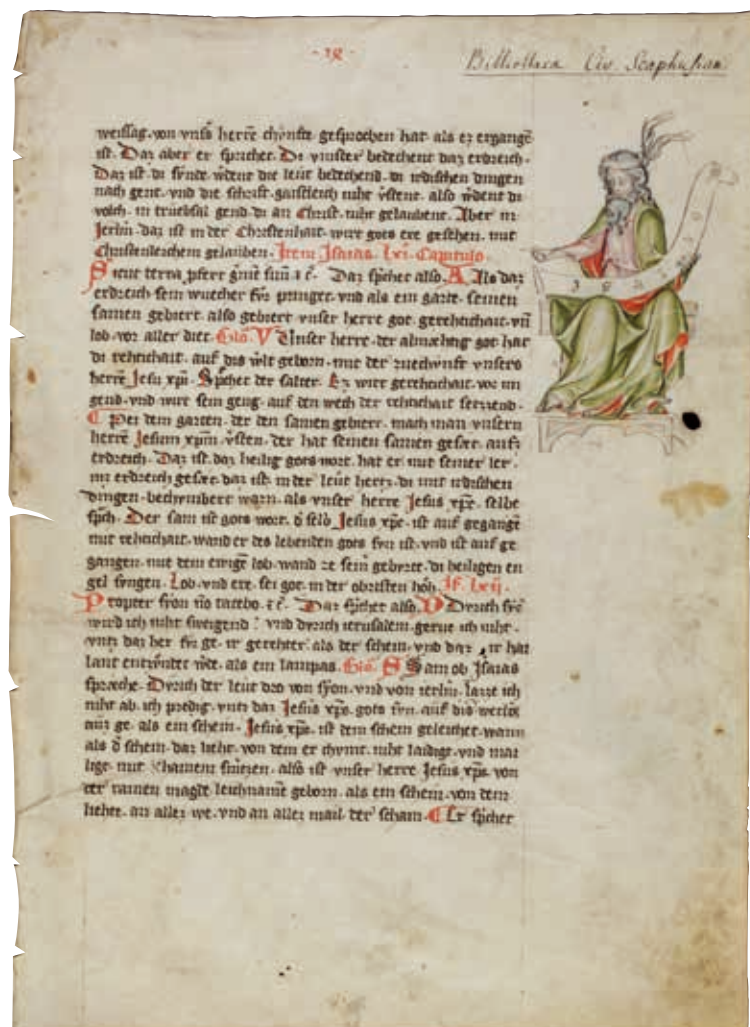 · 18 ·
Bibliotheca Civ. Scaphusian.
weissag. von vnsˢ herrē chvnfte gesprochen hat als ez ergangē
ist. Daz aber er sprichet. Di vinster bedechent daz erdreich.
Daz ist di svnde wˢdent die leut bedechend. di irdischen dingen
nach gent. vnd die schrift. gaistleich niht vˢstent. also wˢdent di
volch. in truebsal gend. di an Christ. niht gelaubent. Aber in
Jerlm̄. daz ist in der Christenhait. wirt gots ere gesehen. mit
Christenleichem gelauben. Item Isaias. lxi. Capitulo.
Sicut terra pfert gm̄e suū ⁊ cˢ. Daz spˢchet also. A Als daz
erdreich sein wuecher fvr pringet. vnd als ein garte. seinen
samen gebiert. also gebiert vnser herre got. gerehtichait. vn̄
lob. vor aller diet. Glo. V Unser herre. der almæhtig got. hat
di rehtichait. auf dis wˢlt geborn. mit der zuechvnft vnsers
herrē Jesu xpi. Spˢchet der salter. Ez wirt gerehtichait. vor im
gend. vnd wirt sein geng. auf den wech der rehtichait setzzend.
Pei dem garten. der den samen gebiert. mach man vnsern
herrē Jesum xpm̄. vˢsten. der hat seinen samen gesæt. aufz
erdreich. Daz ist. daz heilig gots wort. hat er mit seiner ler.
inz erdreich gesæt. daz ist. in der leut hertz. di mit irdischen
dingen. bechvmbert warn. als vnser herre Jesus xpc̄. selbe
spˢch. Der sam ist gots wort. dˢ selb Jesus xpc̄. ist auf gegangē
mit rehtichait. wand er des lebenden gots svn ist. vnd ist auf ge
gangen. mit dem ewigē lob. wand ze seinˢ gebvrte. di heiligen en
gel svngen. Lob. vnd ere. sei got. in der obristen höh. Is. lxij.
Propter syon nō tacebo. ⁊ cˢ. Daz spˢchet also. D Dvrich syō
wird ich niht sweigend. vnd dvrich ierusalem. gerue ich niht.
vntz daz her fvr ge. ir gerehter. als der schein. vnd daz ir hai
lant entzvntet wˢde. als ein lampas. Glo. S Sam ob Isaias
spræche. Dvrich der leut dro von syon. vnd von ierlm̄. lazze ich
niht ab. ich predig. vntz daz Jesus xpc̄. gots svn. auf dis werlt
auz ge. als ein schein. Jesus xpc̄. ist dem schein geleichet. wann
als dˢ schein. daz lieht. von dem er chvmt. niht laidigt. vnd mai
ligt. mit chainem smerzen. also ist vnser herre Jesus xpc̄. von
der rainen magde leichname geborn. als ein schein. von dem
liehet. an allez we. vnd an allez mail. der scham. Er spˢchet